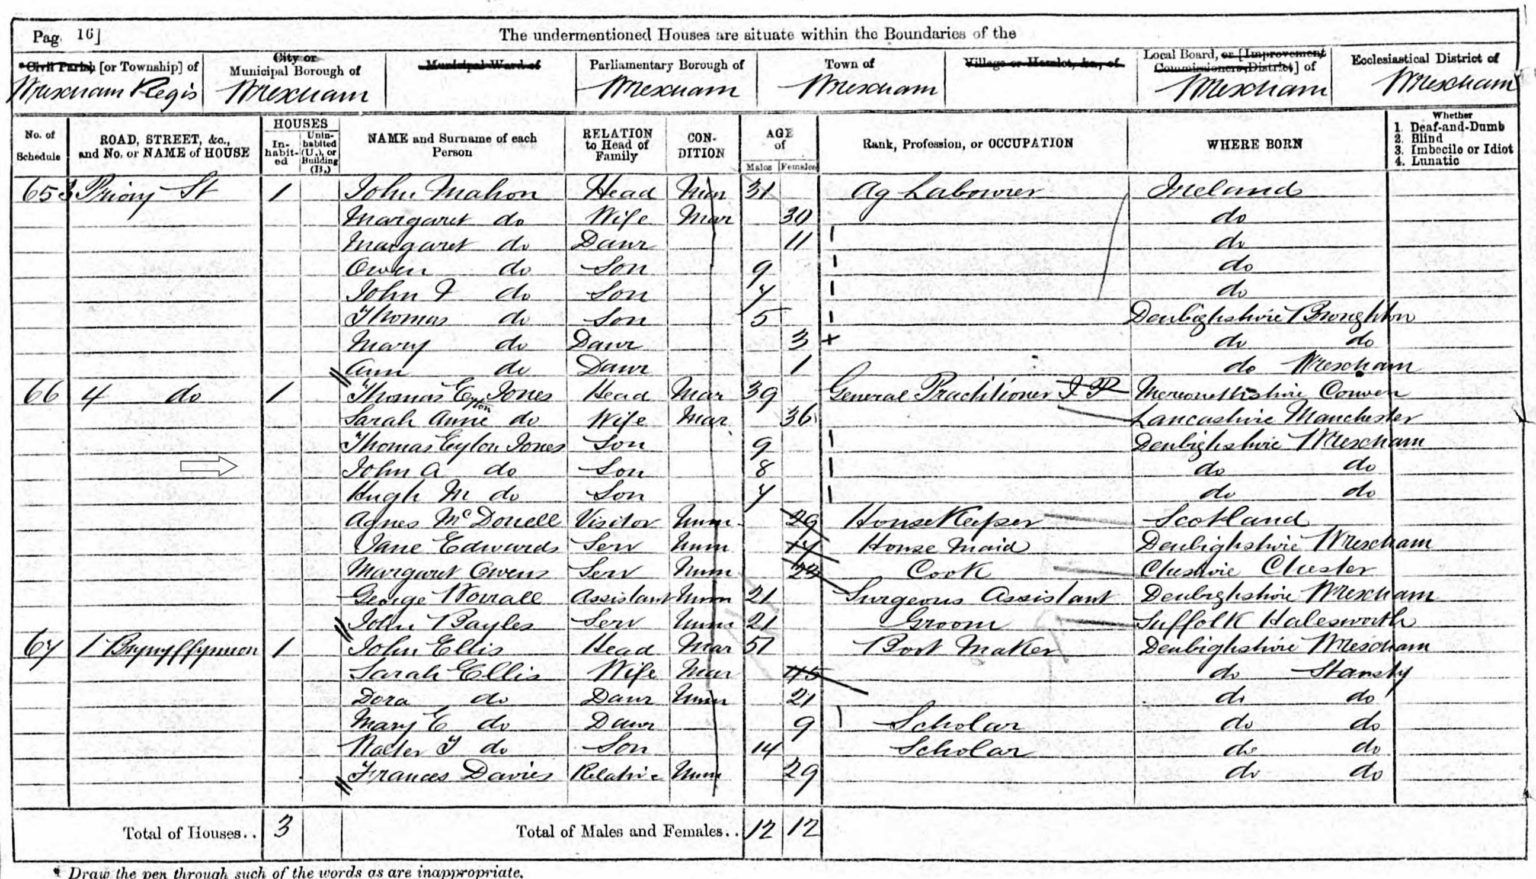 Pag. 16] The undermentioned Houses are situate within the Boundaries of the
*Civil Parish [or Township] of City or Municipal Borough of Municipal Ward of Parliamentary Borough of Town of Village or Hamlet, &c., of Local Board, or [Improvement Commissioners District] of Ecclesiastical District of
Wrexham Regis Wrexham Wrexham Wrexham Wrexham Wrexham
No. of Schedule ROAD, STREET, &c., and No. or NAME of HOUSE HOUSES Inhabited Uninhabited (U.), or Building (B.) NAME and Surname of each Person RELATION to Head of Family CONDITION AGE of Males Females Rank, Profession, or OCCUPATION WHERE BORN Whether 1. Deaf-and-Dumb 2. Blind 3. Imbecile or Idiot 4. Lunatic
65 3 Priory St 1 John Mahon Head Mar 31 Ag Labourer Ireland
Margaret do Wife Mar 30 do
Margaret do Daur 11 do
Owen do Son 9 do
John F do Son 7 do
Thomas do Son 5 Denbighshire Broughton
Mary do Daur 3 do do
Ann do Daur 1 do Wrexham
66 4 do 1 Thomas Eyton Jones Head Mar 39 General Practitioner Merionethshire Corwen
Sarah Anne do Wife Mar 36 Lancashire Manchester
Thomas Eyton Jones Son 9 Denbighshire Wrexham
John A do Son 8 do do
Hugh M do Son 7 do do
Agnes McDonell Visitor Unm 29 HouseKeeper Scotland
Jane Edwards Serv Unm 17 House Maid Denbighshire Wrexham
Margaret Owens Serv Unm 23 Cook Cheshire Chester
George Worrall Assistant Unm 21 Surgeons Assistant Denbighshire Wrexham
John Bayles Serv Unm 21 Groom Suffolk Halesworth
67 1 Brynyffynnon 1 John Ellis Head Mar 51 Boot Maker Denbighshire Wrexham
Sarah Ellis Wife Mar 45 do Stansty
Dora do Daur Unm 21 do do
Mary E do Daur 9 Scholar do do
Walter J do Son 14 Scholar do do
Frances Davies Relative Unm 29 do do
Total of Houses.. 3 Total of Males and Females.. 12 12
* Draw the pen through such of the words as are inappropriate.